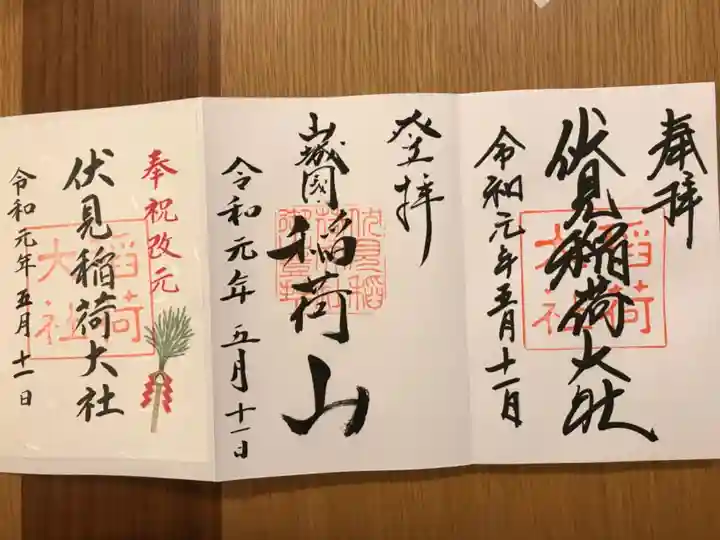 奉拝
伏見稲荷大社
令和元年五月十一日
登拝
山城国
稲荷山
令和元年五月十一日
奉祝改元
伏見稲荷大社
令和元年五月十一日
稲荷
大社
稲荷
大社